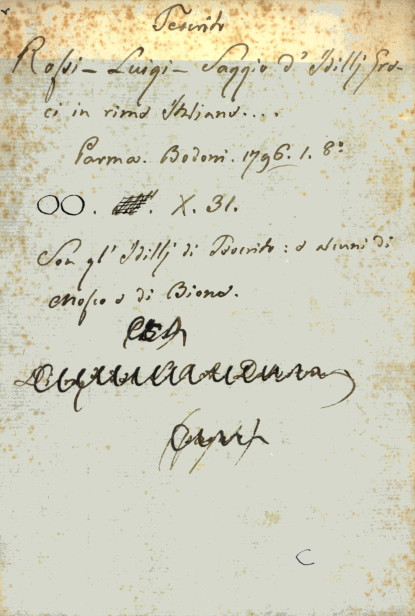 Teocrito
Rossi - Luigi - Saggio d' Idillj Gre-
ci in rima Italiana...
Parma. Bodoni. 1796. 1. 8º
OO. X. 31.
Son gl' Idillj di Teocrito: e alcuni di
Mosco e di Bione.
C